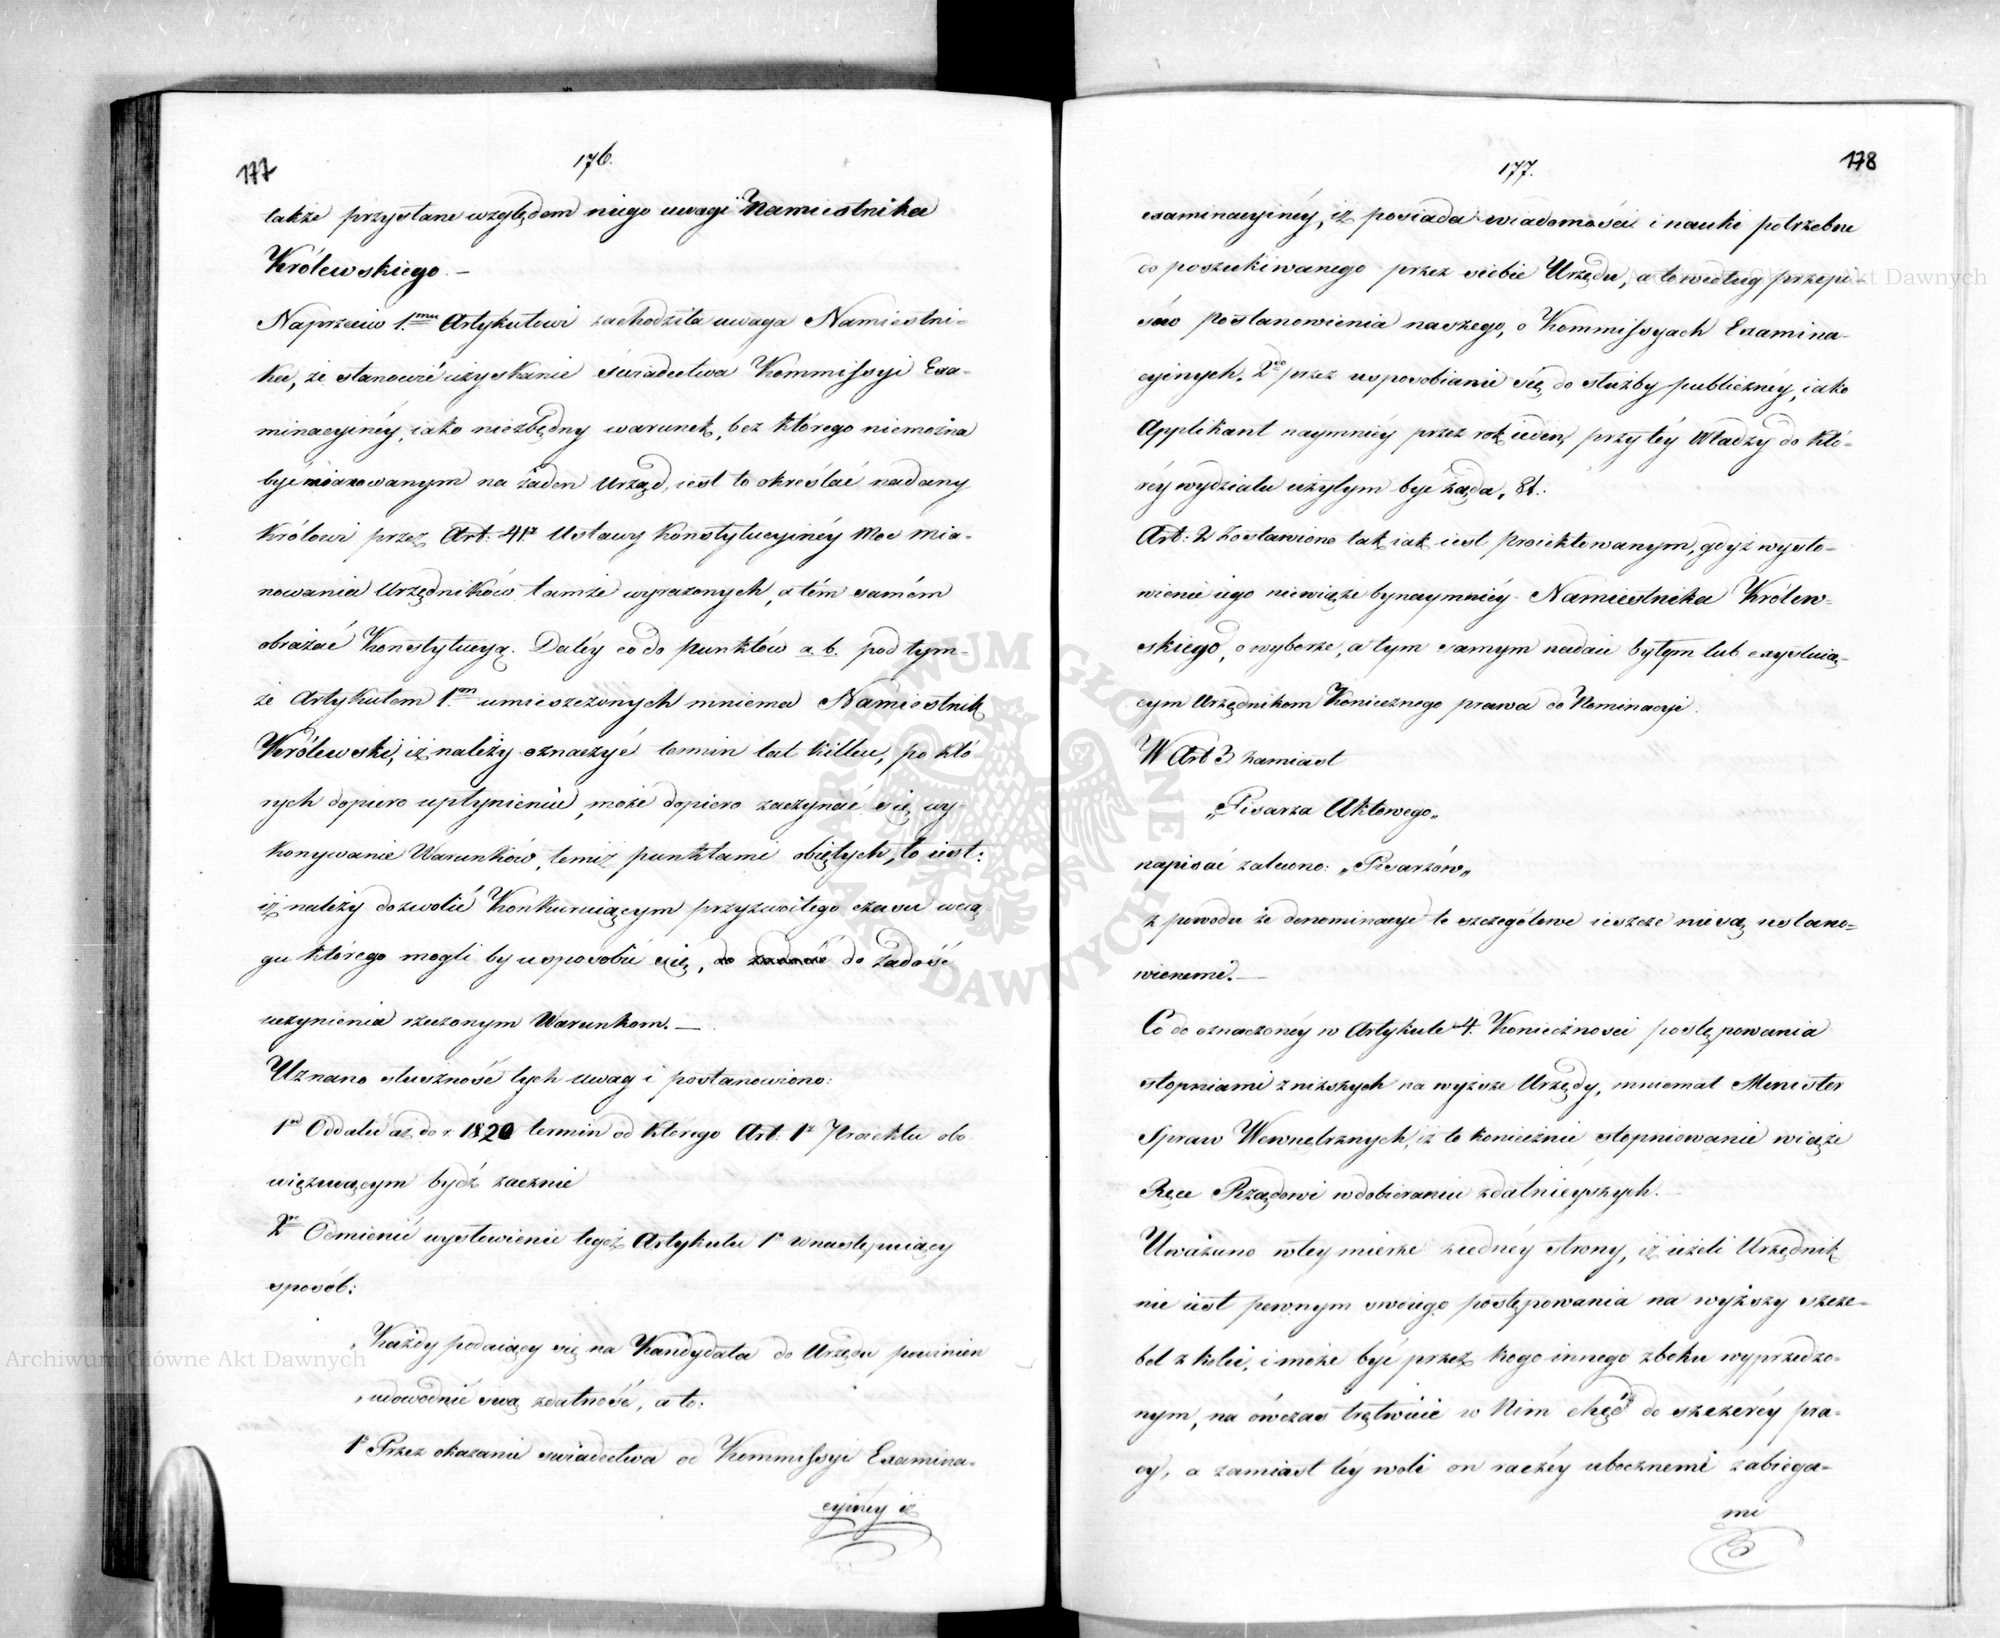 177
176.
także przysłane względem niego uwagi Namiestnika
Królewskiego. —
Naprzeciw 1.mu Artykułowi zachodziła uwaga Namiestni-
ka, że stanowić uzyskanie świadectwa Kommissyi Exa-
minacyinéy, iako niezbędny warunek, bez którego niemożna
być mianowanym na żaden Urząd, iest to określać nadaną
Królowi przez Art: 41. Ustawy Konstytucyinéy Moc mia-
nowania Urzędników tamże wyrażonych, a tém samém
obrażać Konstytucyą. Daléy co do punktów a. b. pod tym-
że Artykułem 1.m umieszczonych mniema Namiestnik
Królewski, iż należy oznaczyć termin lat kilku, po któ-
rych dopiero upłynieniu, może dopiero zaczynać się wy
konywanie Warunków, temiż punktami obiętych, to iest:
iż należy dozwolić Konkuruiącym przyzwoitego czasu w cią-
gu którego mogli by usposobić się, do zadość
uczynienia rzeczonym Warunkom. —
Uznano słuszność tych uwag i postanowiono:
1o Oddalić aż do r. 1820 termin od którego Art: 1o Proiektu obo
więzuiącym bydź zacznie
2o Odmienić wysłowienie tegoż Artykułu 1o w następuiący
sposób:
„Każdy podaiący się na Kandydata do Urzędu powinien
„udowodnić swą zdatność, a to:
1o Przez okazanie swiadectwa od Kommissyi Examina-
cyinéy iż
178
177.
examinacyinéy, iż posiada wiadomości i nauki potrzebne
do poszukiwanego przez siebie Urzędu, a to według przepi-
sów postanowienia naszego, o Kommissyach Examina-
cyinych. 2do przez usposobianie się do służby publicznéy, iako
Applikant naymniéy przez rok ieden, przy téy Władzy do któ-
réy wydziału użytym być żąda, &t:
Art: 2 zostawiono tak iak iest proiektowanym, gdyż wysło-
wienie iego niewiąże bynaymniéy Namiestnika Królew-
skiego, o wyborze, a tym samym nadaie byłym lub exystuią-
cym Urzędnikom Koniecznego prawa do Nominacyi.
W Art 3 zamiast
„Pisarza Aktowego„
napisać zalecono: „Pisarzów„
z powodu że denominacye te szczegółowe ieszcze nie są ustano-
wionemi. —
Co do oznaczonéy w Artykule 4. Konieczności postępowania
stopniami z niższych na wyższe Urzędy, mniemał Minister
Spraw Wewnętrznych, iż to konieczne stopniowanie wiąże
Ręce Rządowi w dobieraniu zdatniéyszych.
Uważano w téy mierze z iednéy strony, iż ieżeli Urzędnik
nie iest pewnym swoiego postępowania na wyższy szcze-
bel z kolei, i może być przez kogo innego z boku wyprzedzo-
nym, na ówczas w Nim chęć do szczeréy pra-
cy, a zamiast téy woli on raczéy ubocznemi zabiega-
mi
Archiwum Główne Akt Dawnych
Archiwum Główne Akt Dawnych
ARCHIWUM GŁÓWNE AKT DAWNYCH